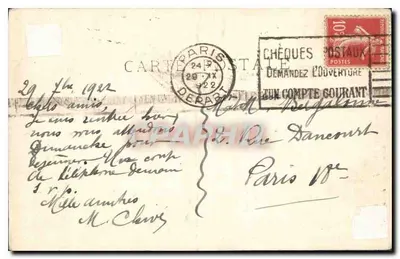 CARTE POSTALE
PARIS
29 IX
1922
DEPART
CHÈQUES POSTAUX
DEMANDEZ L'OUVERTURE
D'UN COMPTE COURANT
10c
POSTES
29 7bre 1922
Chers amis,
Je suis rentrée hier,
nous vous attendons
Dimanche pour
déjeuner. Un coup
de téléphone demain
s.v.p.
Mille amitiés
M.
rue Dancourt
Paris 18e